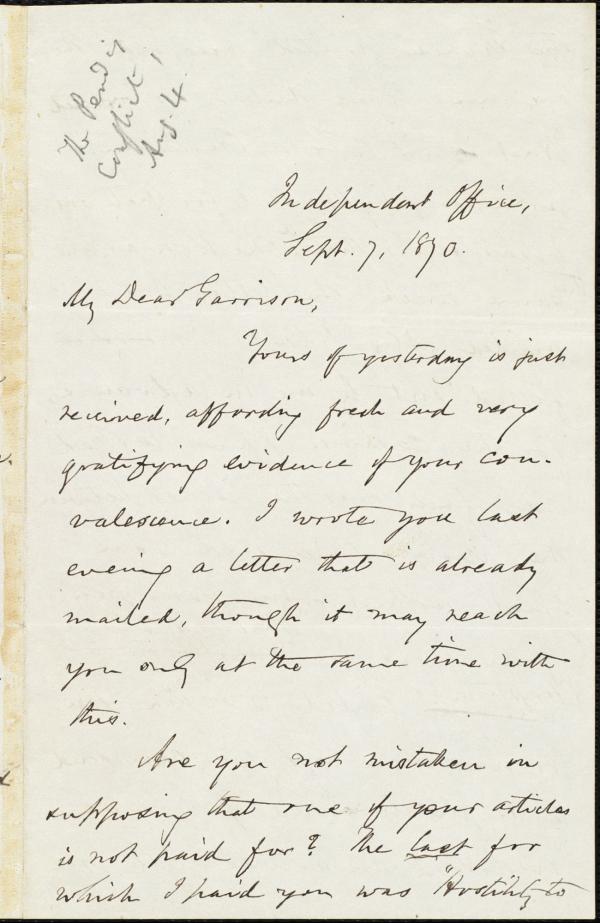 The Pending
Conflict,
Aug. 4
Independent Office,
Sept. 7, 1870.
My Dear Garrison,
Yours of yesterday is just
received, affording fresh and very
gratifying evidence of your con-
valescence. I wrote you last
evening a letter that is already
mailed, though it may reach
you only at the same time with
this.
Are you not mistaken in
supposing that one of your articles
is not paid for? The last for
which I paid you was "Hostility to